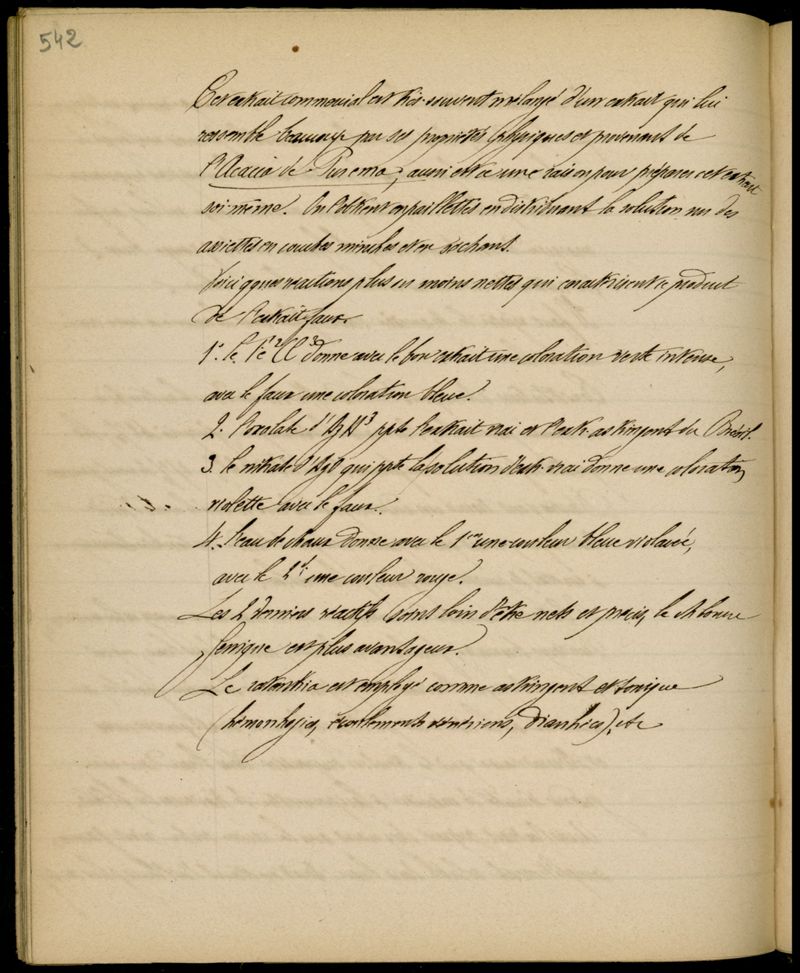 542
Cet extrait commercial est très souvent mélangé d'un extrait qui lui
ressemble beaucoup par ses propriétés physiques et provenant de
l'Acacia de, aussi est-ce une raison pour préparer cet extrait
soi-même. On l'obtient en paillettes en distribuant la solution sur des
assiettes en couches minces et en séchant.
Voici qques réactions plus ou moins nettes qui caractérisent ce produit
de l'extrait faux.
1º. le Fe²Cl³ donne avec le bon extrait une coloration verte intense,
avec le faux une coloration bleue.
2. l'oxalate d' ppte l'extrait vrai et l'extr. astringent du Brésil.
3. le nitrate d'AgO qui ppte la solution d'extr. vrai donne une coloration
violette avec le faux.
4. l'eau de chaux donne avec le 1er une couleur bleue violacée,
avec le 2d une couleur rouge.
Les 2 derniers réactifs sont loin d'être nets et précis, le chlorure
ferrique est plus avantageux.
Le ratanhia est employé comme astringent et tonique
(hémorrhagies, écoulements vénériens, diarrhées), etc